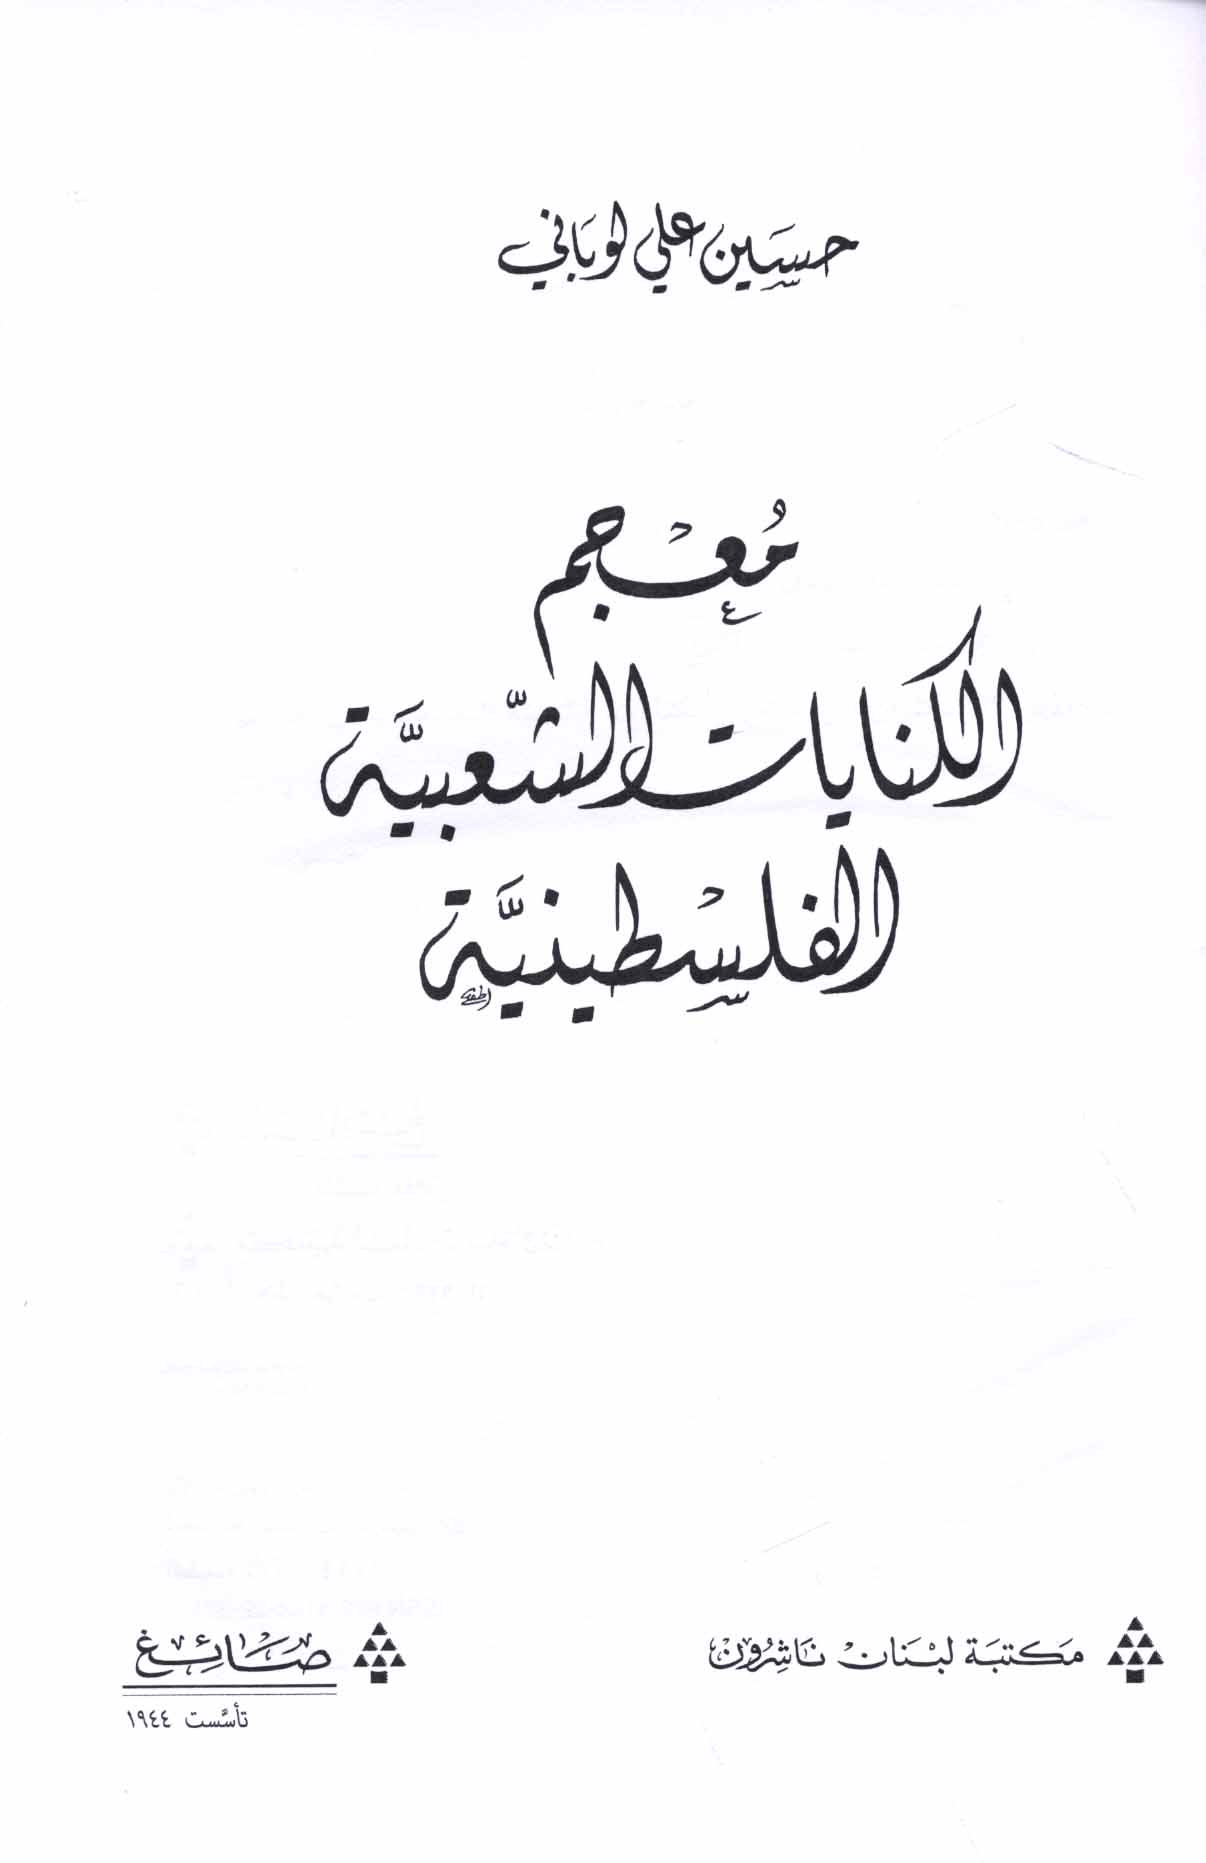 حسين علي لوباني
مُعْجم
الكنايات الشّعبيَّة
الفلسْطينيَّة
مَكتبَة لبْنَان نَاشِرُون
صَايِغ
تأسَّست ١٩٤٤